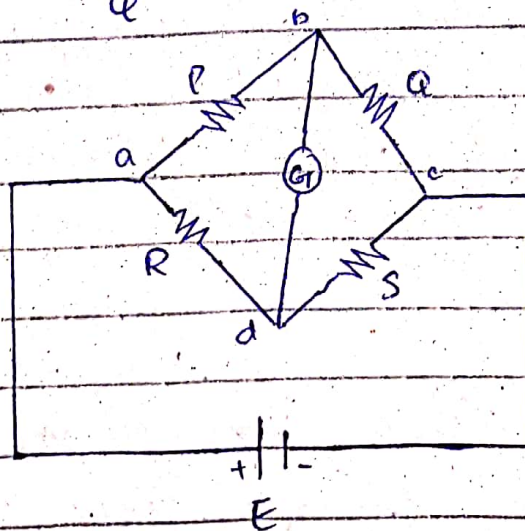 b
P
Q
a
G
c
R
S
d
+ -
E